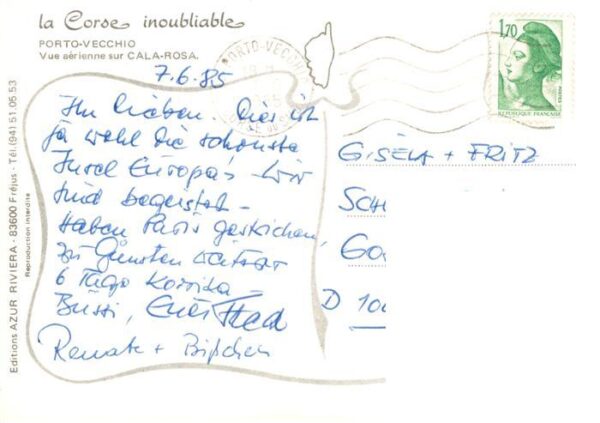 la Corse inoubliable
PORTO-VECCHIO
Vue aérienne sur CALA-ROSA.
PORTO-VECCHIO
1,70
REPUBLIQUE FRANÇAISE
7.6.85
Ihr Lieben. Dies ist
ja wohl die schönste
Insel Europas - wir
sind begeistert -
Haben Paris gestrichen,
zu Gunsten weiterer
6 Tage Korsika -
Bussi, Euer
Renate +
GISELA + FRITZ
SCH
GO
D 10
Editions AZUR RIVIERA - 83600 Fréjus - Tél. (94) 51.05.53
Reproduction interdite